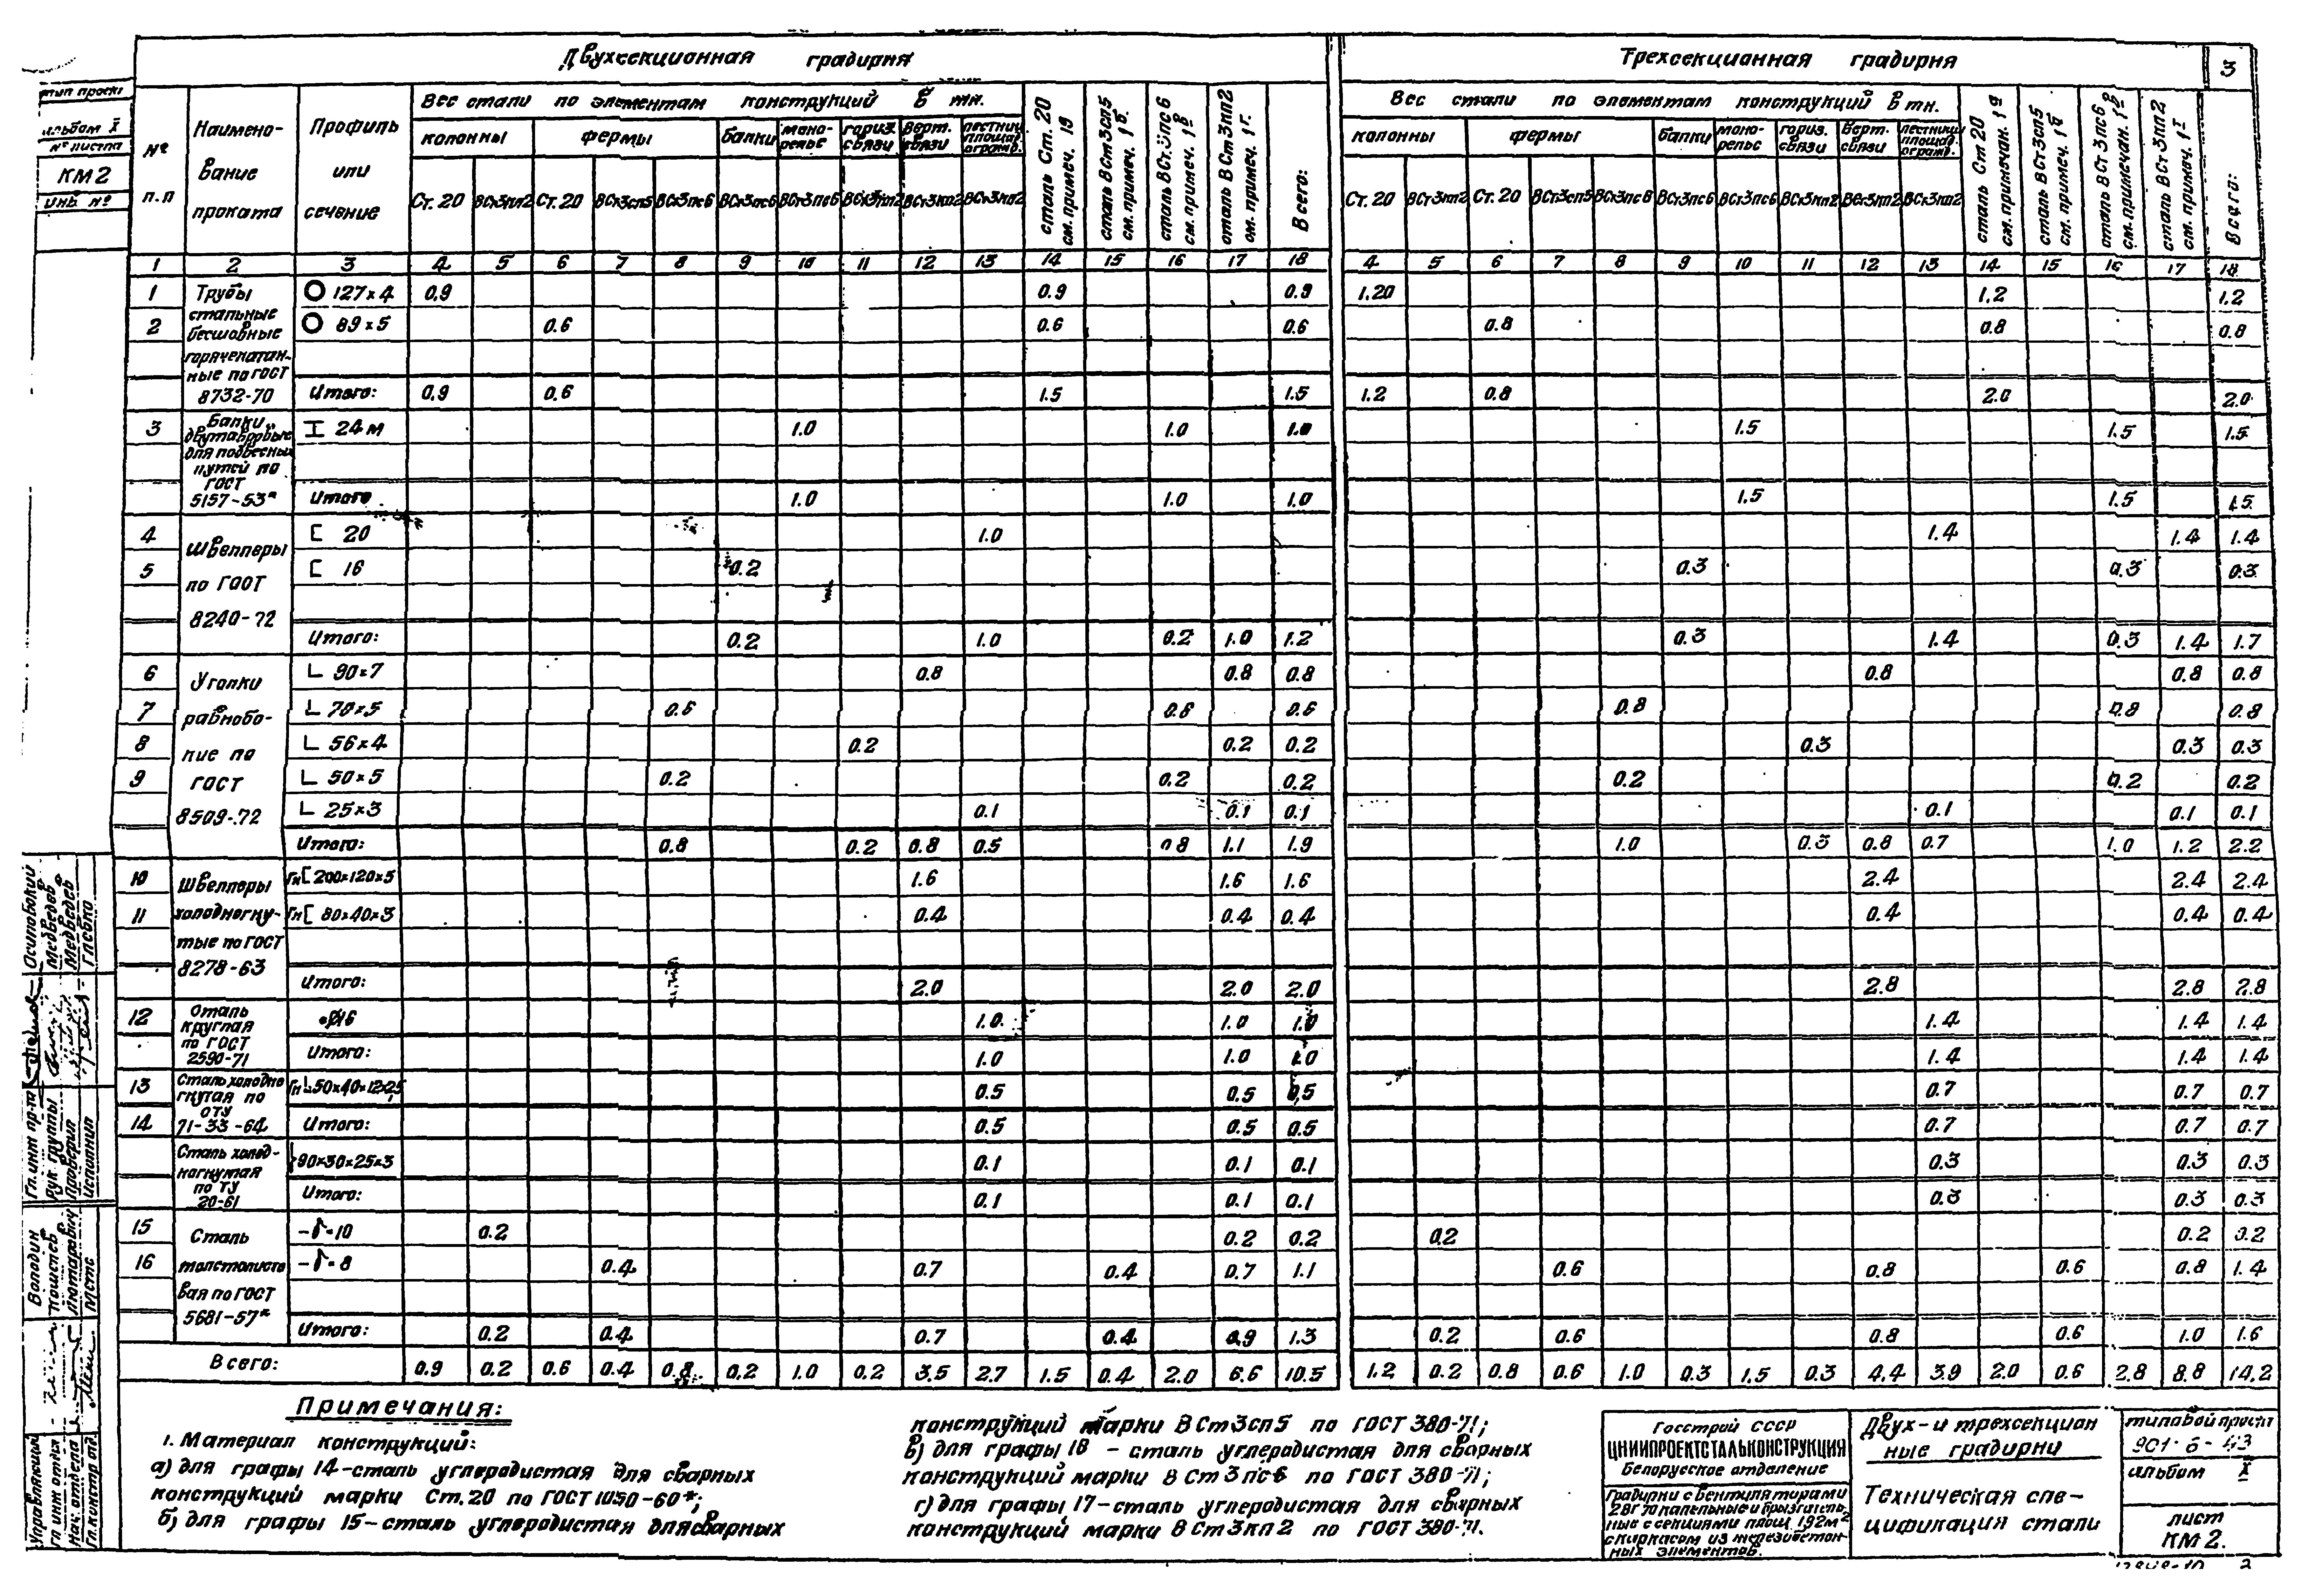 Двухсекционная градирня
Трехсекционная градирня
3
Альбом X
№ листа
КМ2
Инв. №
№ п.п
Наименование проката
Профиль или сечение
Вес стали по элементам конструкций в тн.
колонны фермы балки монорельс гориз. связи верт. связи лестниц площад. огражд.
Ст. 20 ВСт3кп2 Ст. 20 ВСт3сп5 ВСт3пс6 ВСт3пс6 ВСт3пс6 ВСт3кп2 ВСт3кп2 ВСт3кп2
сталь Ст. 20 см. примеч. 1а
сталь ВСт3сп5 см. примеч. 1б
сталь ВСт3пс6 см. примеч. 1в
сталь ВСт3кп2 см. примеч. 1г.
Всего:
Вес стали по элементам конструкций в тн.
колонны фермы балки монорельс гориз. связи верт. связи лестницы площад. огражд.
Ст. 20 ВСт3кп2 Ст. 20 ВСт3сп5 ВСт3пс6 ВСт3пс6 ВСт3пс6 ВСт3кп2 ВСт3кп2 ВСт3кп2
сталь Ст 20 см. примечан. 1а
сталь ВСт3сп5 см. примеч. 1б
сталь ВСт3пс6 см. примечан. 1в
сталь ВСт3кп2 см. примеч. 1г
Всего:
1 2 3 4 5 6 7 8 9 10 11 12 13 14 15 16 17 18 4 5 6 7 8 9 10 11 12 13 14 15 16 17 18
Трубы стальные бесшовные горячекатанные по ГОСТ 8732-70
1 127×4 0.9 0.9 0.9 1.20 1.2 1.2
2 89×5 0.6 0.6 0.6 0.8 0.8 0.8
Итого: 0.9 0.6 1.5 1.5 1.2 0.8 2.0 2.0
Балки двутавровые для подвесных путей по ГОСТ 5157-53*
3 I 24м 1.0 1.0 1.0 1.5 1.5 1.5
Итого 1.0 1.0 1.0 1.5 1.5 1.5
Швеллеры по ГОСТ 8240-72
4 [ 20 1.0 1.4 1.4 1.4
5 [ 16 0.2 0.3 0.3 0.3
Итого: 0.2 1.0 0.2 1.0 1.2 0.3 1.4 0.3 1.4 1.7
Уголки равнобокие по ГОСТ 8509-72
6 L 90×7 0.8 0.8 0.8 0.8 0.8 0.8
7 L 70×5 0.6 0.6 0.6 0.8 0.8 0.8
8 L 56×4 0.2 0.2 0.2 0.3 0.3 0.3
9 L 50×5 0.2 0.2 0.2 0.2 0.2 0.2
L 25×3 0.1 0.1 0.1 0.1 0.1 0.1
Итого: 0.8 0.2 0.8 0.5 0.8 1.1 1.9 1.0 0.3 0.8 0.7 1.0 1.2 2.2
Швеллеры холодногнутые по ГОСТ 8278-63
10 Гн[ 200×120×5 1.6 1.6 1.6 2.4 2.4 2.4
11 Гн[ 80×40×3 0.4 0.4 0.4 0.4 0.4 0.4
Итого: 2.0 2.0 2.0 2.8 2.8 2.8
Сталь круглая по ГОСТ 2590-71
12 •Ø16 1.0 1.0 1.0 1.4 1.4 1.4
Итого: 1.0 1.0 1.0 1.4 1.4 1.4
Сталь холодногнутая по ОТУ 71-33-64
13 Гн 50×40×12×2,5 0.5 0.5 0,5 0.7 0.7 0.7
14 Итого: 0.5 0.5 0.5 0.7 0.7 0.7
Сталь холодногнутая по ТУ 20-61
90×30×25×3 0.1 0.1 0.1 0.3 0.3 0.3
Итого: 0.1 0.1 0.1 0.3 0.3 0.3
Сталь толстолистовая по ГОСТ 5681-57*
15 -δ=10 0.2 0.2 0.2 0.2 0.2 0.2
16 -δ=8 0.4 0.7 0.4 0.7 1.1 0.6 0.8 0.6 0.8 1.4
Итого: 0.2 0.4 0.7 0.4 0.9 1.3 0.2 0.6 0.8 0.6 1.0 1.6
Всего: 0.9 0.2 0.6 0.4 0.8 0.2 1.0 0.2 3.5 2.7 1.5 0.4 2.0 6.6 10.5 1.2 0.2 0.8 0.6 1.0 0.3 1.5 0.3 4.4 3.9 2.0 0.6 2.8 8.8 14.2
Примечания:
1. Материал конструкций:
а) для графы 14-сталь углеродистая для сварных
конструкций марки Ст.20 по ГОСТ 1050-60*;
б) для графы 15-сталь углеродистая для сварных
конструкций марки ВСт3сп5 по ГОСТ 380-71;
в) для графы 18 - сталь углеродистая для сварных
конструкций марки ВСт3пс6 по ГОСТ 380-71;
г) для графы 17-сталь углеродистая для сварных
конструкций марки ВСт3кп2 по ГОСТ 380-71.
Госстрой СССР
ЦНИИПРОЕКТСТАЛЬКОНСТРУКЦИЯ
Белорусское отделение
Градирни с вентиляторами
2ВГ 70 капельные и брызгатель-
ные с секциями площ. 192м²
с каркасом из железобетон-
ных элементов.
Двух- и трехсекцион
ные градирни
Техническая спе-
цификация стали
типовой проект
901-6-43
альбом X
лист
КМ2.
Гл. инж пр-та Осиповский
Рук. группы Медведев
Проверил Медведев
Исполнил Глебко
Управляющий Володин
гл. инж. отдел. Кошелев
Нач. отдела
Гл. констр. отд.